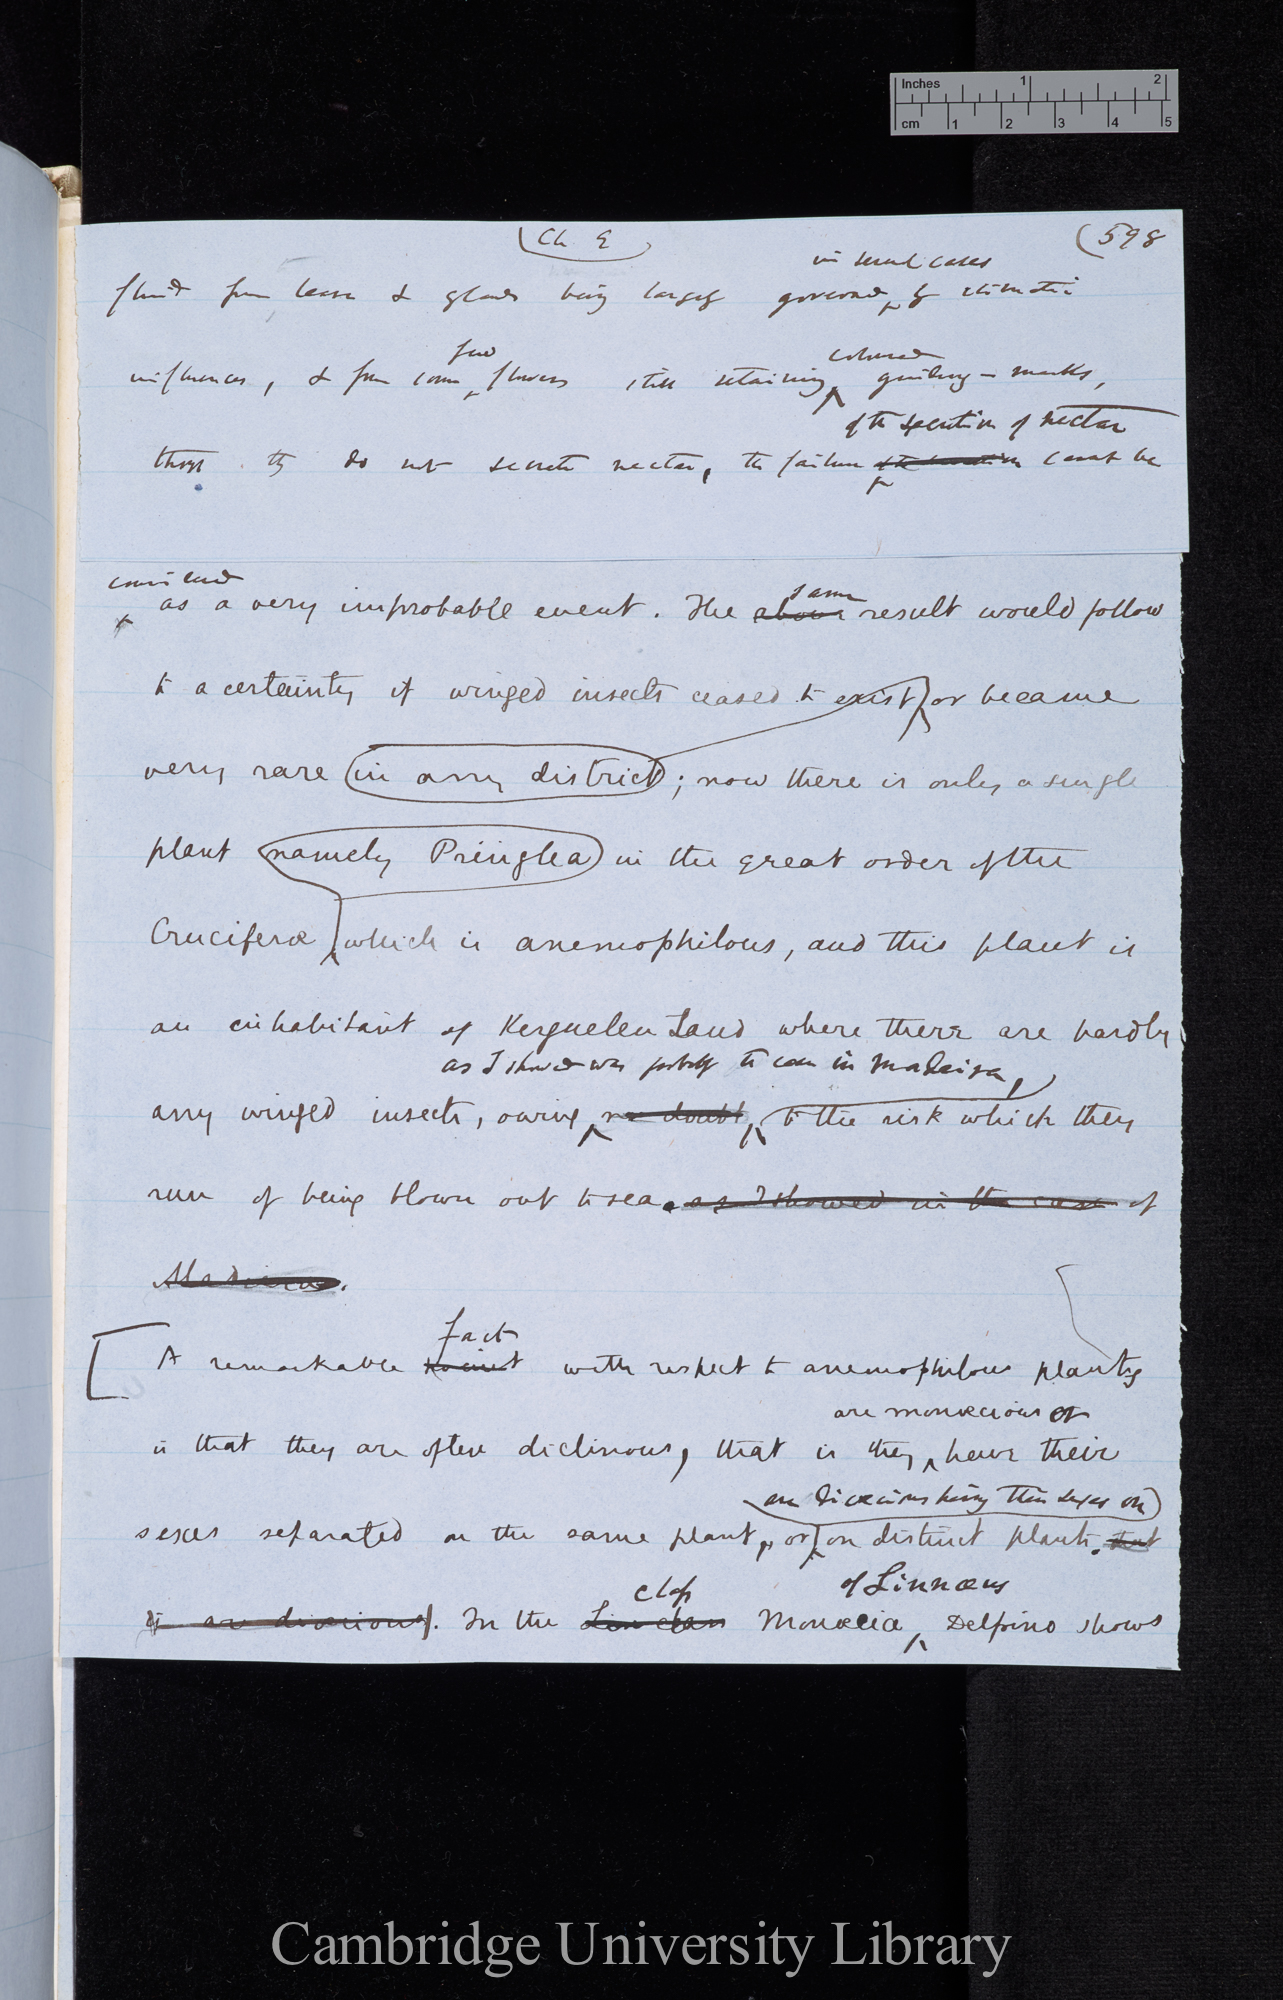 Inches 1 2
cm 1 2 3 4 5
Ch 9 (598
in several cases
fluid from leaves & glands being largely governed by climatic
few coloured
influences, & from some flowers still retaining guiding-marks,
of the secretion of nectar
though they do not secrete nectar, the failure cannot be
considered
same
as a very improbable event. The above result would follow
to a certainty if winged insects ceased to exist or became
very rare (in any district); now there is only a single
plant (namely Pringlea) in the great order of the
Cruciferæ which is anemophilous, and this plant is
an inhabitant of Kerguelen Land where there are hardly
as I showed was probably the case in Madeira,
any winged insects, owing no doubt, to the risk which they
run of being blown out to sea. as I showed in the case of
Madeira.
fact
[A remarkable with respect to anemophilous plants
are monœcious or
is that they are often diclinous, that is they have their
are diœcious having their sexes on
sexes separated on the same plant, or on distinct plants. that
class of Linnæus
is are diœcious). In the Lin class Monœcia, Delpino shows
Cambridge University Library